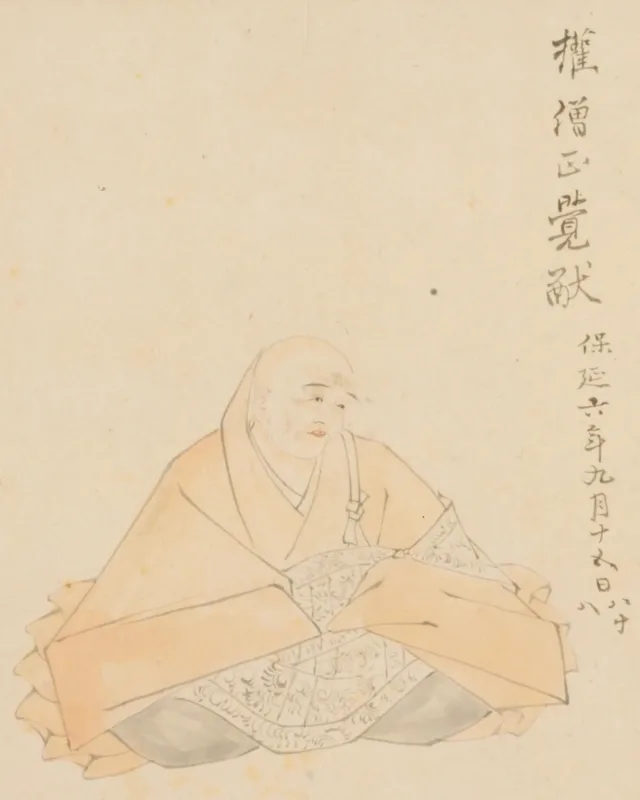 權僧正覺猷
保延六年九月十五日
八十
八